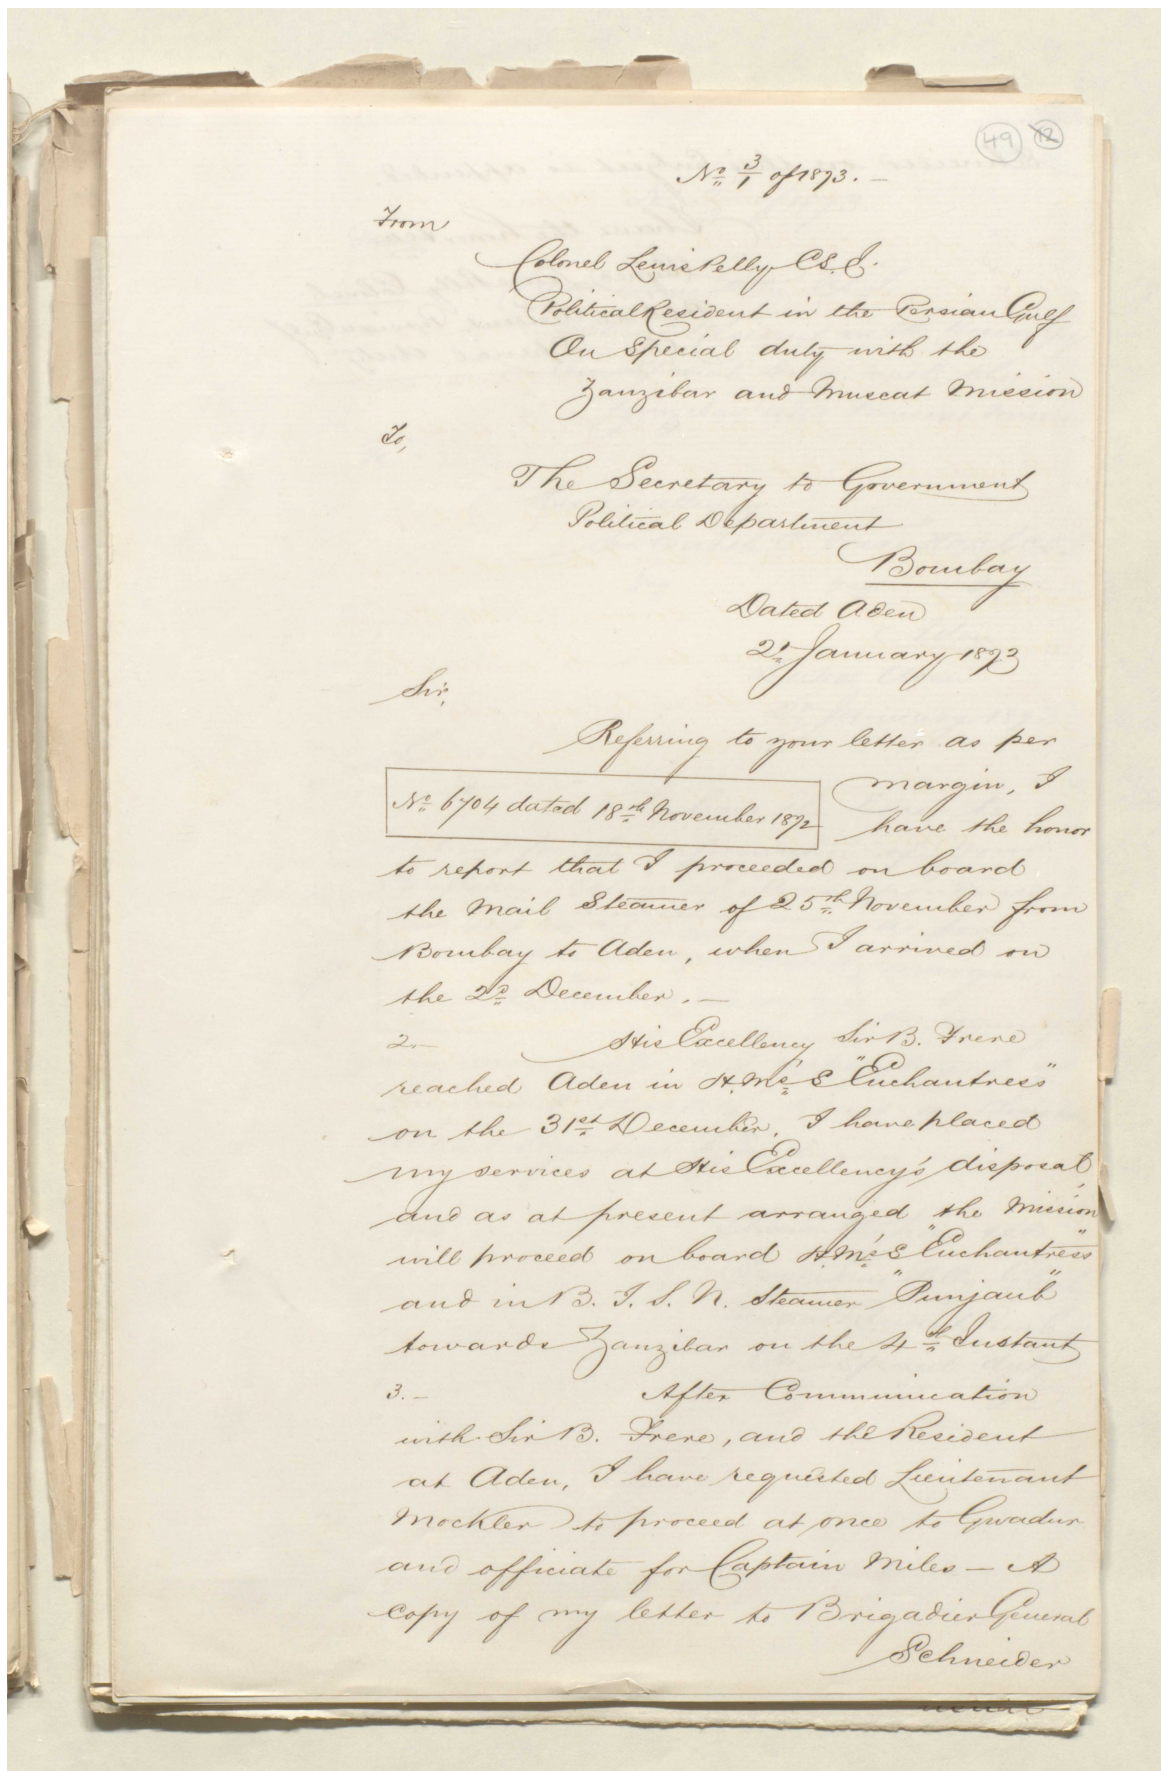 49 12
No 3/1 of 1873. —
From
Colonel Lewis Pelly C.S.I.
Political Resident in the Persian Gulf
On Special duty with the
Zanzibar and Muscat Mission
To,
The Secretary to Government
Political Department
Bombay
Dated Aden
2d January 1873
Sir,
Referring to your letter as per
margin, I
No 6704 dated 18th November 1872
have the honor
to report that I proceeded on board
the Mail Steamer of 25th November from
Bombay to Aden, when I arrived on
the 2d December. —
2. — His Excellency Sir B. Frere
reached Aden in H.M's S "Enchantress"
on the 31st December. I have placed
my services at His Excellency's disposal,
and as at present arranged the Mission
will proceed on board H.M's S "Enchantress"
and in B. I. S. N. Steamer "Punjaub"
towards Zanzibar on the 4th Instant
3. — After Communication
with Sir B. Frere, and the Resident
at Aden, I have requested Lieutenant
Mockler to proceed at once to Gwadur
and officiate for Captain Miles — A
copy of my letter to Brigadier General
Schneider